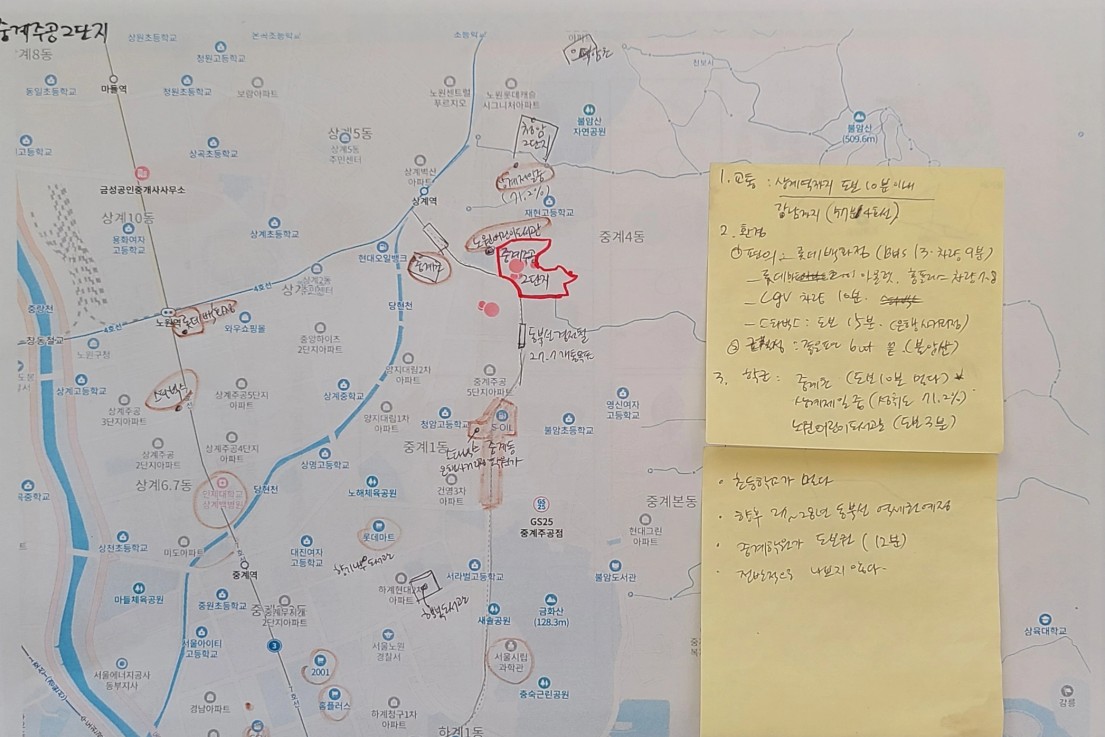 중계주공2단지
계8동
상원초등학교
온곡초등학교
청원고등학교
동일초등학교
마들역
청원초등학교
보람아파트
노원센트럴
푸르지오
노원롯데캐슬
시그니처아파트
불암산
자연공원
불암산
(509.6m)
상계5동
상계5동
주민센터
상곡초등학교
금성공인중개사사무소
상계10동
용화여자
고등학교
상계초등학교
상계벽산
아파트
상계역
2단지
상계제일중
(71.2%)
재현고등학교
노원어린이도서관
중계4동
중계주공
2단지
현대오일뱅크
4호선
중랑천
당현천
노원역
롯데백화점
와우쇼핑몰
창동철교
노원구청
중앙하이츠
2단지아파트
동부선 경전철
27.7 개통목표
상계고등학교
스타벅스
상계주공
3단지아파트
상계주공5단지
아파트
상계중학교
양지대림2차
아파트
양지대림1차
아파트
중계주공
5단지아파트
청암고등학교
S-OIL
불암초등학교
영신여자
고등학교
중계1동
상계주공
2단지아파트
상계주공4단지
아파트
상명고등학교
상계6.7동
인제대학교
상계백병원
당현천
노해체육공원
건영3차
아파트
중계동
학원가
중계본동
GS25
중계주공점
롯데마트
현대그린
아파트
상천초등학교
미도아파트
대진여자
고등학교
중계역
서라벌고등학교
불암도서관
하계현대2차
아파트
마들체육공원
중원초등학교
중계무지개
2단지아파트
새솔공원
금화산
(128.3m)
서울아이티
고등학교
서울노원
경찰서
서울시립
과학관
삼육대학교
서울에너지공사
동부지사
2001
홈플러스
충숙근린공원
경남아파트
하계청구1차
아파트
하계1동
강릉
1. 교통 : 상계역까지 도보 10분이내
강남까지 (57분 4호선)
2. 환경
① 편의 : 롯데백화점 (bus 13. 차량 9분)
- CGV 차량 10분.
- 스타벅스 : 도보 15분. (은행사거리점)
3. 학군 : 중계초 (도보 10분 멀다)
상계제일중 (성취도 71.2%)
노원어린이도서관 (도보 3분)
· 초등학교가 멀다
· 향후 27~28년 동북선 역세권예정
· 중계학원가 도보권 (12분)
· 전반적으로 나쁘지 않다.